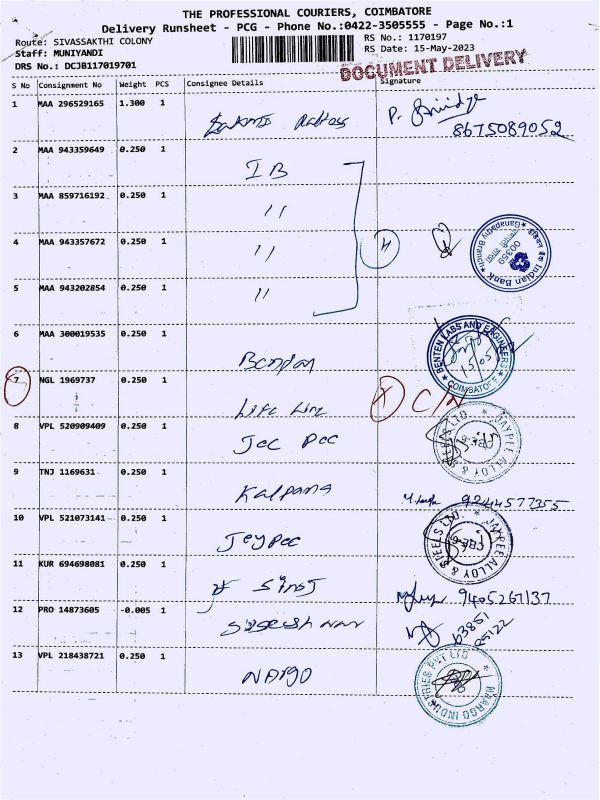 THE PROFESSIONAL COURIERS, COIMBATORE
Delivery Runsheet - PCG - Phone No.:0422-3505555 - Page No.:1
Route: SIVASSAKTHI COLONY
Staff: MUNIYANDI
DRS No.: DCJB117019701
RS No.: 1170197
RS Date: 15-May-2023
DOCUMENT DELIVERY
S No Consignment No Weight PCS Consignee Details Signature
1 MAA 296529165 1.300 1
8675089052
2 MAA 943359649 0.250 1 IB
3 MAA 859716192 0.250 1 "
4 MAA 943357672 0.250 1 " 4
Indian Bank Ganapathy Branch 00359
5 MAA 943202854 0.250 1 "
6 MAA 300019535 0.250 1
BENTEN LABS AND ENGINEERS COIMBATORE 15/05
7 NGL 1969737 0.250 1 Life Line C/N
8 VPL 520909409 0.250 1 Jee Pee
JAYPEE ALLOY & STEELS LTD. CBE-6
9 TNJ 1169631 0.250 1 Kalpana 9244577355
10 VPL 521073141 0.250 1 Jeypee
JAYPEE ALLOY & STEELS LTD. CBE-6
11 KUR 694698081 0.250 1 9405267137
12 PRO 14873605 -0.005 1
13 VPL 218438721 0.250 1 NArgo
NAARGO INDUSTRIES PVT LTD